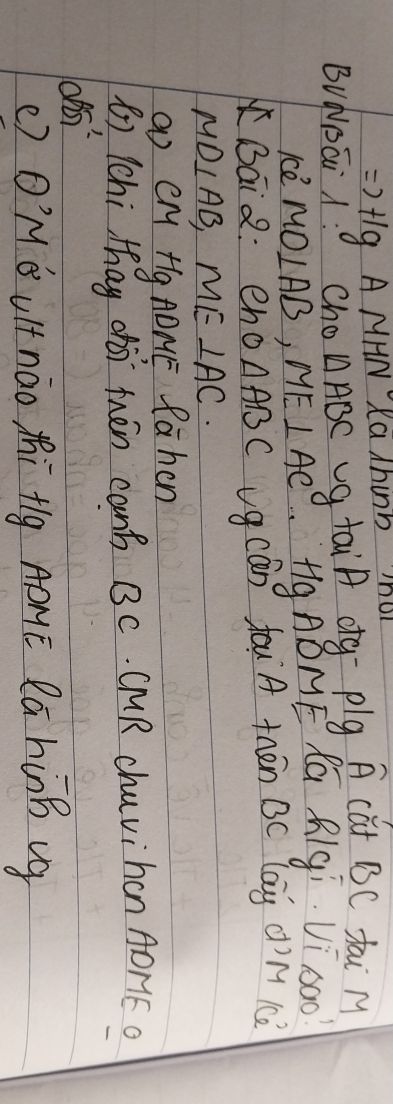 =) Hg AMHN là hình thoi
BVN Bài 1: Cho ΔABC vg tại A đg-p/g Â cắt BC tại M
kẻ MD⊥AB, ME⊥AC. Hg ADME là h/gì. Vì sao?
* Bài 2: Cho ΔABC vg cân tại A trên BC lấy đ' M kẻ
MD⊥AB, ME⊥AC.
a) CM Hg ADME là hcn
b) Khi thay đổi trên cạnh BC. CMR chu vi hcn ADME o
đổi
c) Đ' M ở vịt nào thì Hg ADME là hình vg